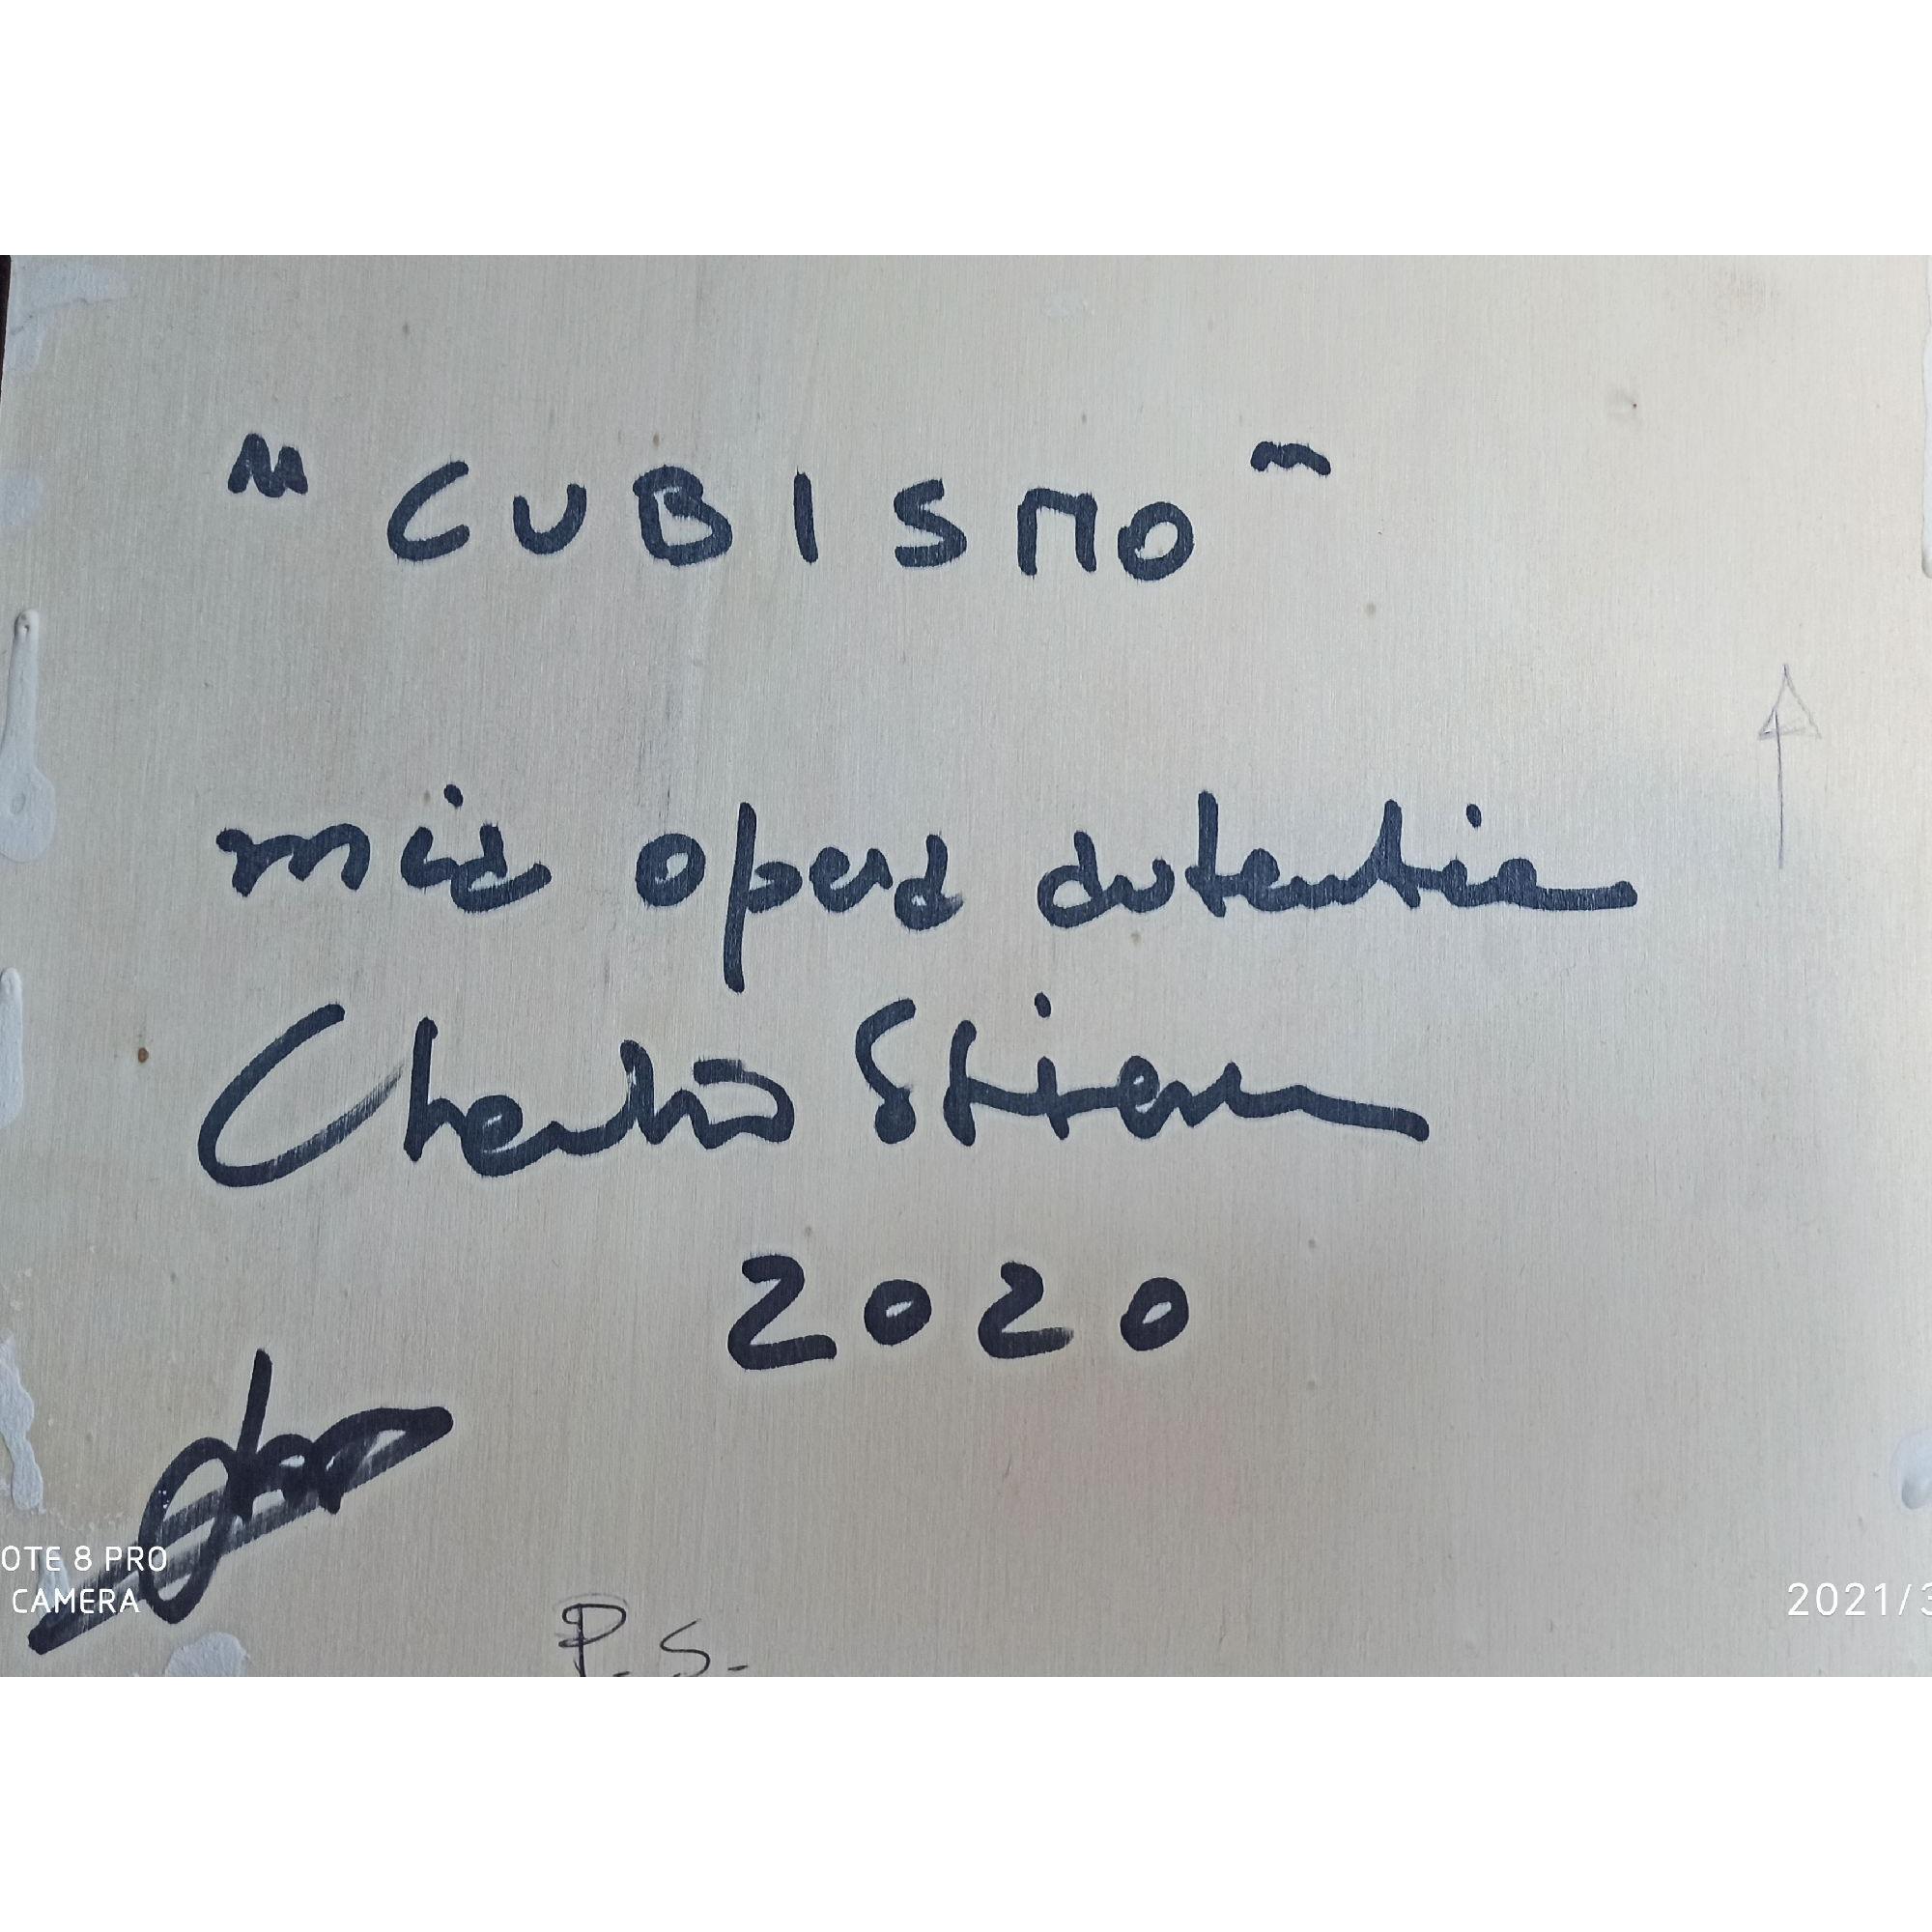 "CUBISMO"
mia opera autentica
2020
OTE 8 PRO
CAMERA
2021/3
P.S.